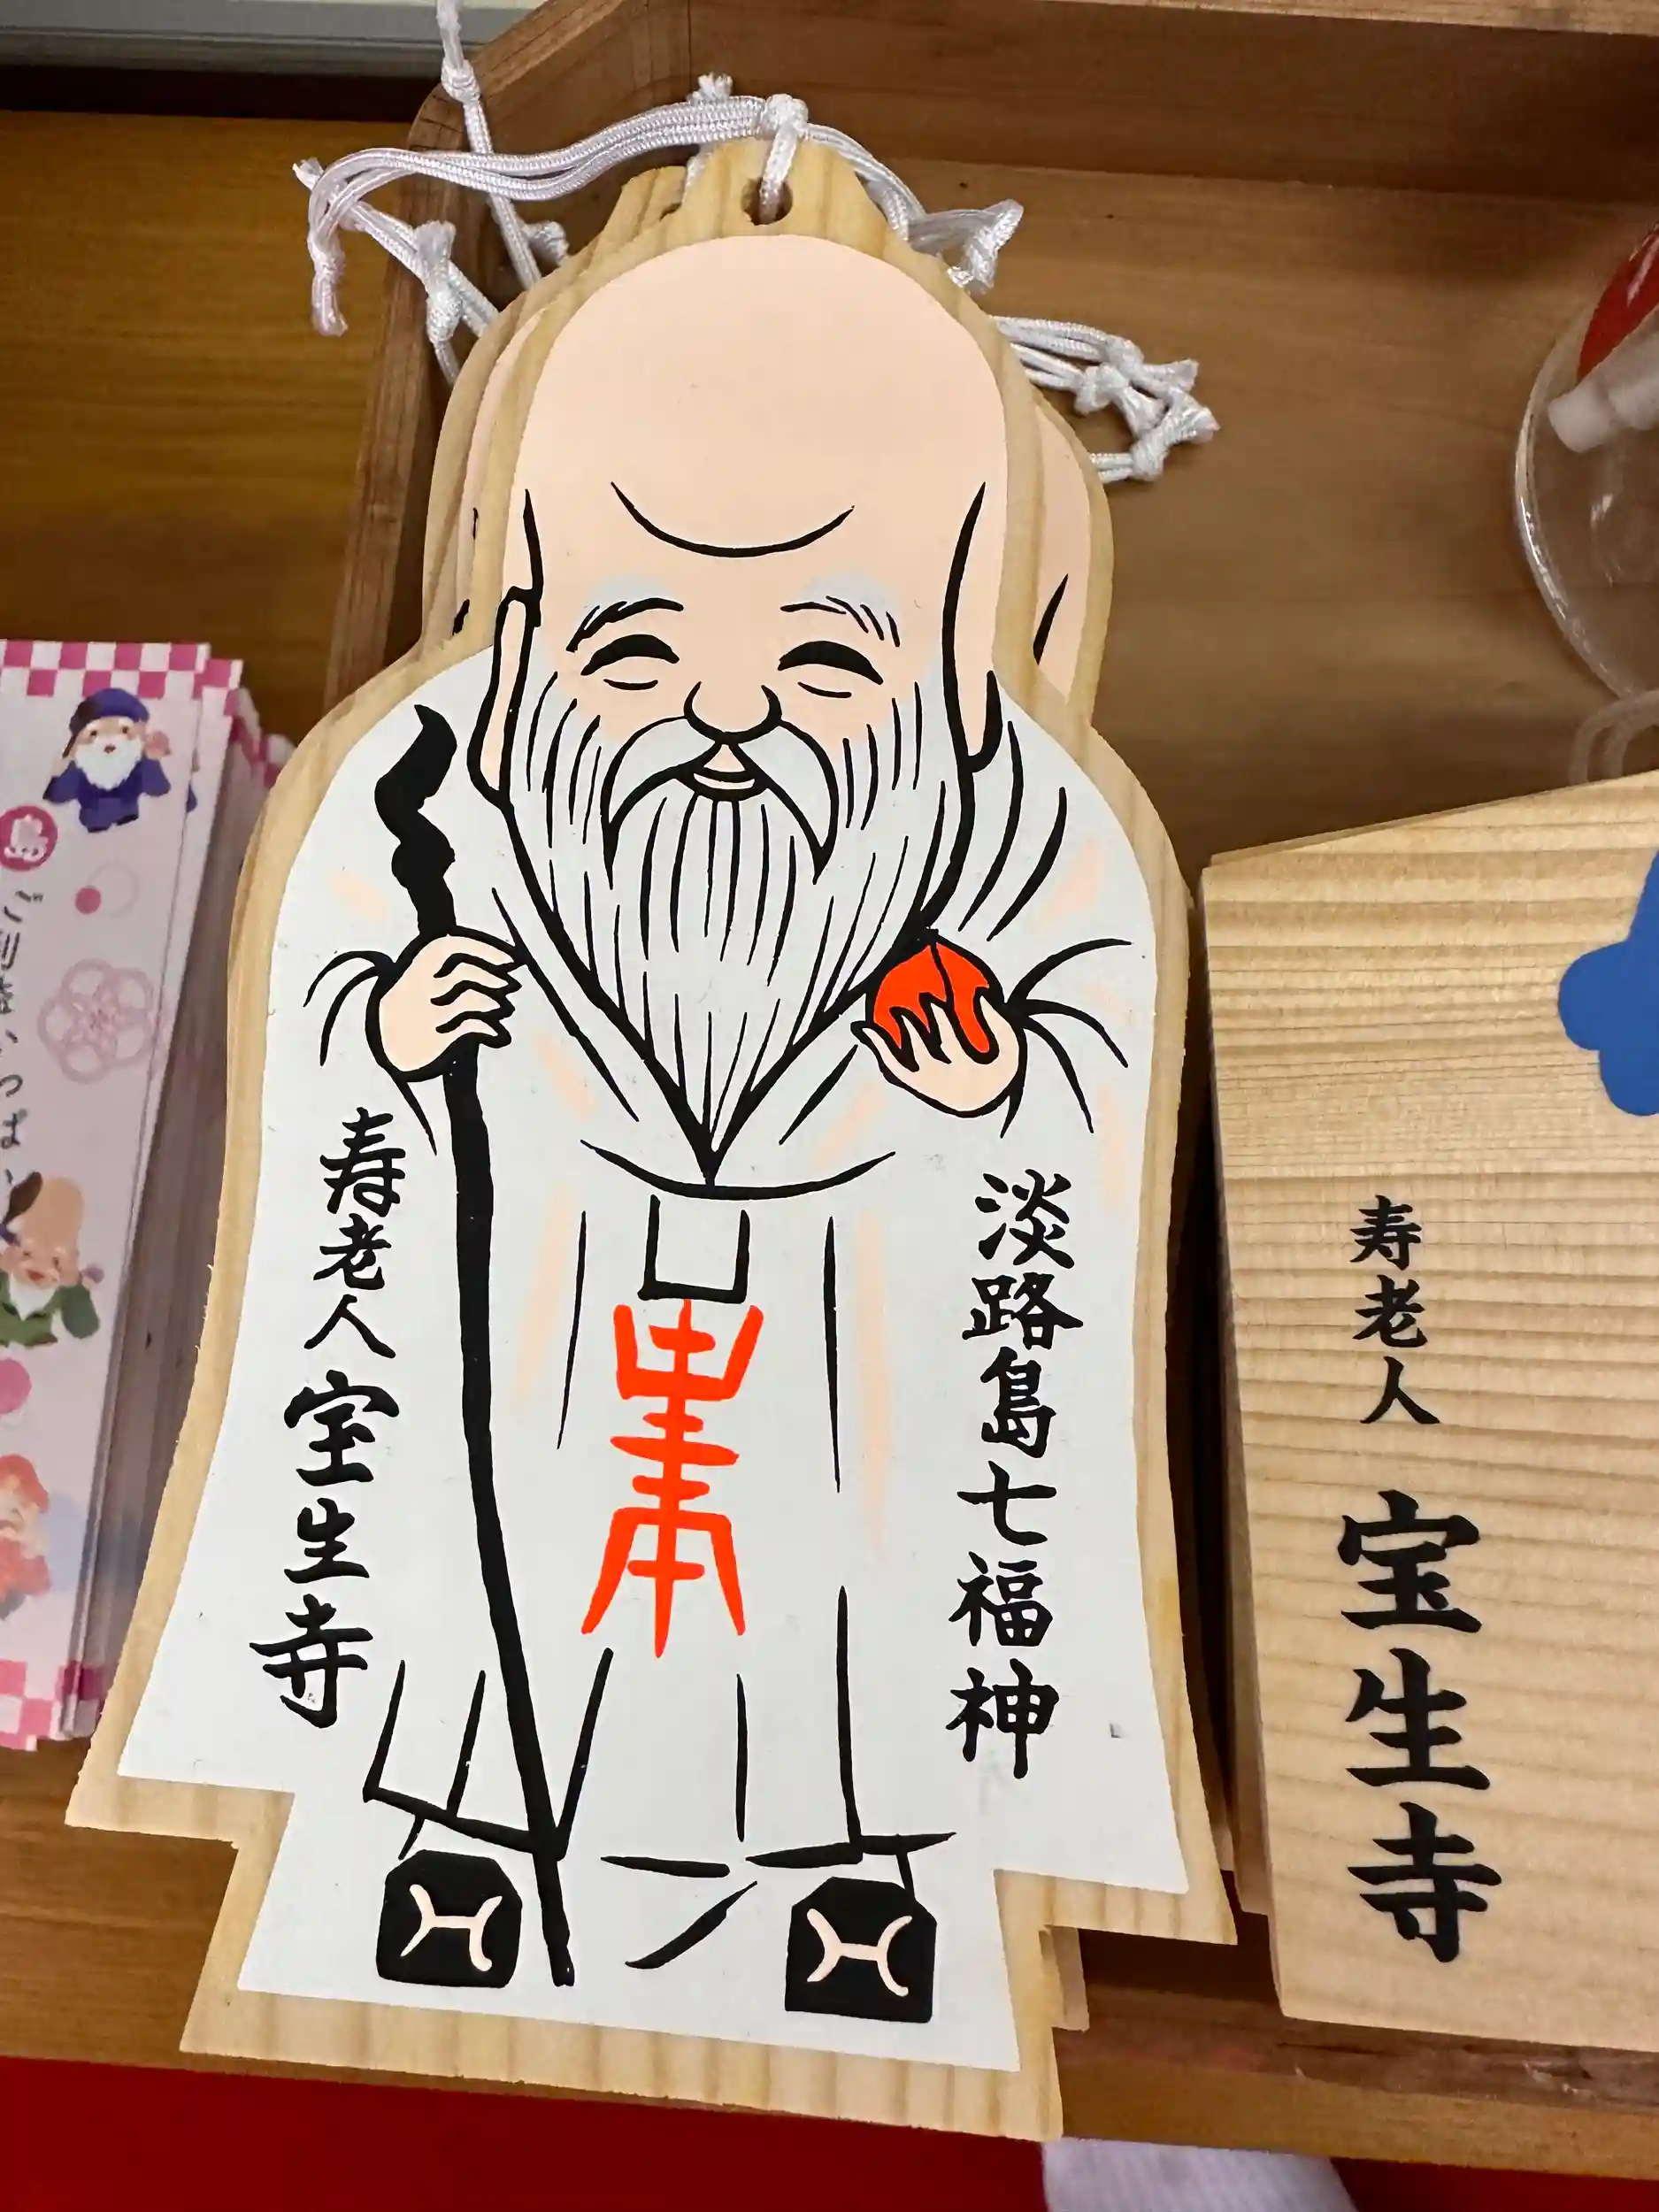 淡路島七福神
寿老人 宝生寺
寿老人 宝生寺
島
ご利益いっぱい